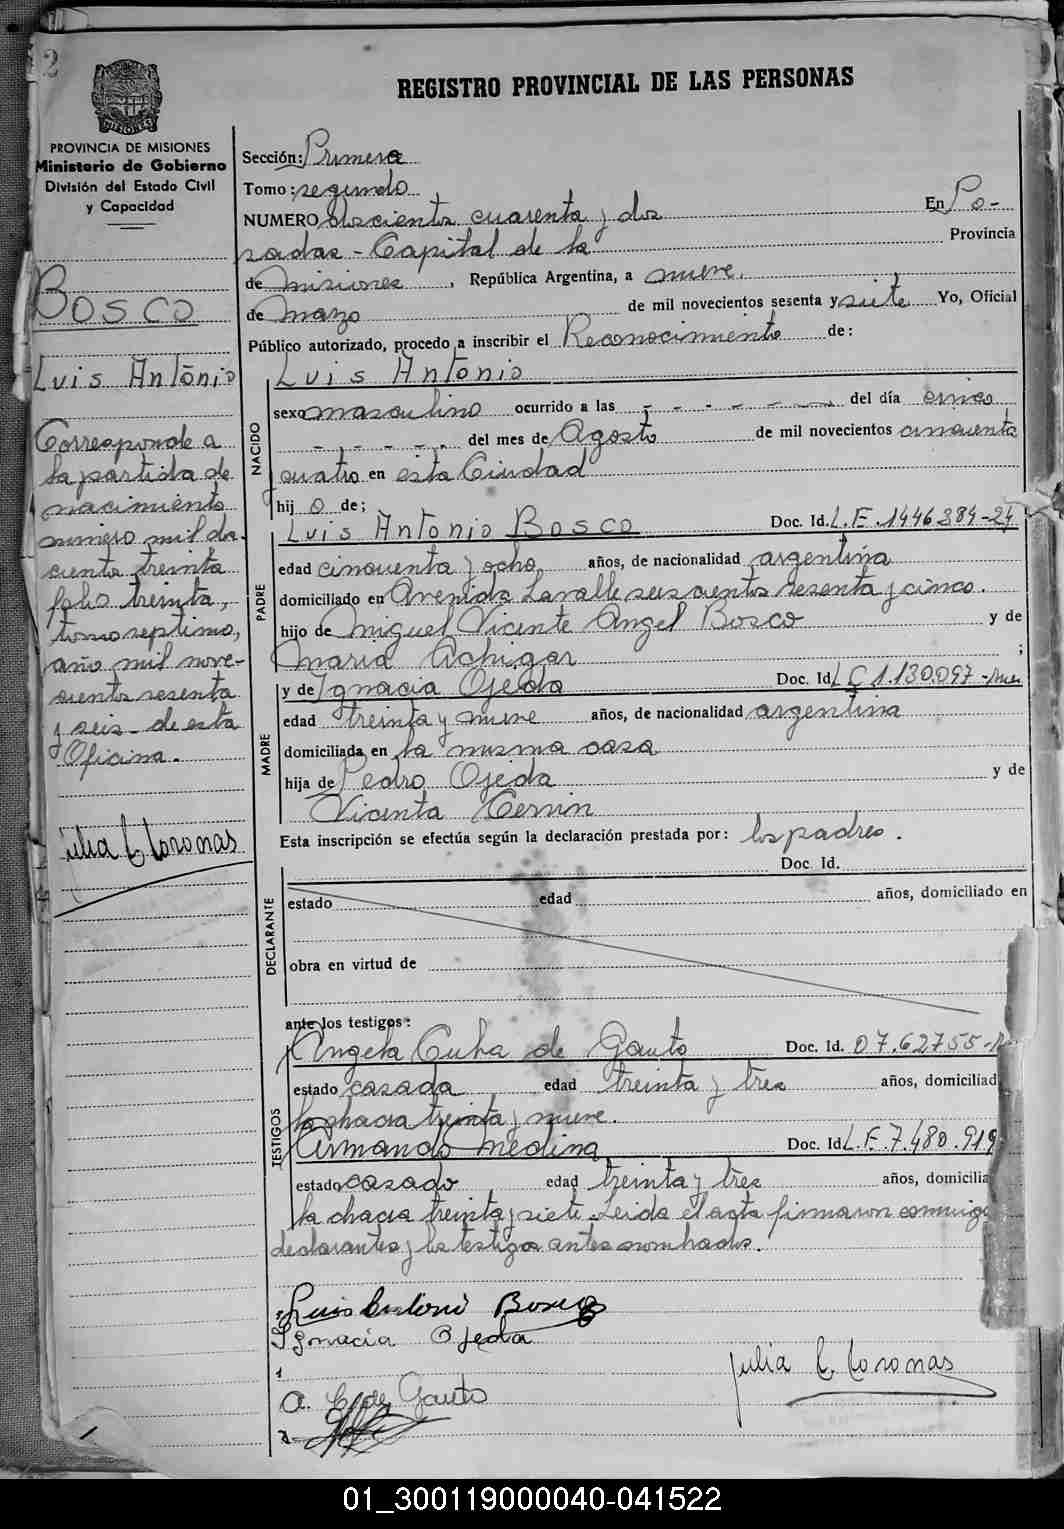 2
PROVINCIA DE MISIONES
Ministerio de Gobierno
División del Estado Civil
y Capacidad
BOSCO
Luis Antonio
Corresponde a
la partida de
nacimiento
número mil dos-
cientos treinta
folio treinta,
tomo septimo,
año mil nove-
cientos sesenta
y seis - de esta
Oficina.
Julia C. Coronas
REGISTRO PROVINCIAL DE LAS PERSONAS
Sección: Primera
Tomo: segundo
NUMERO doscientos cuarenta y dos En Po-
sadas - Capital de la Provincia
de Misiones, República Argentina, a nueve.
de Marzo de mil novecientos sesenta y siete Yo, Oficial
Público autorizado, procedo a inscribir el Reconocimiento de:
NACIDO
Luis Antonio
sexo masculino ocurrido a las - - - - - - del día cinco
- - - - - . del mes de Agosto de mil novecientos cincuenta
cuatro en esta Ciudad
hij o de;
PADRE
Luis Antonio Bosco Doc. Id. L.E. 1446384-24
edad cincuenta y ocho, años, de nacionalidad argentina
domiciliado en Avenida Lavalle seiscientos sesenta y cinco.
hijo de Miguel Vicente Angel Bosco y de
Maria Achigar ;
MADRE
y de Ignacia Ojeda Doc. Id. L C 1.130.097
edad treinta y nueve años, de nacionalidad argentina
domiciliada en la misma casa
hija de Pedro Ojeda y de
Vicenta
Esta inscripción se efectúa según la declaración prestada por: los padres.
DECLARANTE
Doc. Id.
estado edad años, domiciliado en
obra en virtud de
ante los testigos:
TESTIGOS
Angela Cuha de Gauto Doc. Id. 07.62755
estado casada edad treinta y tres años, domiciliad
la chacra treinta y nueve.
Armando Medina Doc. Id. L.E. 7.480.919
estado casado edad treinta y tres años, domicilia
la chacra treinta y siete. Leida el acta firmaron conmigo
declarantes y los testigos antes nombrados.
Luis Antonio Bosco
Ignacia Ojeda
Julia C. Coronas
A. C. de Gauto
01_300119000040-041522